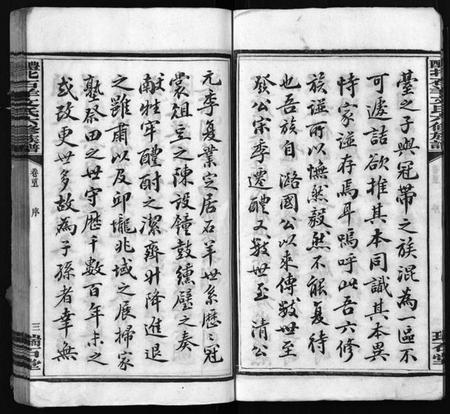 臺之子與冠帶之族混為一區不
可遽詰欲推其本同識其本異
恃家譜存焉耳嗚呼此吾六修
族譜所以憮然毅然不能復待
也吾族自潞國公以來傳數世至
發公宋季遷醴又數世至 清公
元季復業定居石羊世系歷〻冠
裳俎豆之陳設鐘鼓纁璧之奏
獻牲牢醴酎之潔齊升降進退
之雖肅以及邱壠兆域之展掃家
塾祭田之世守歷千數百年未之
或改更世多故為子孫者幸無
醴北石羊文氏六修族譜
序
三